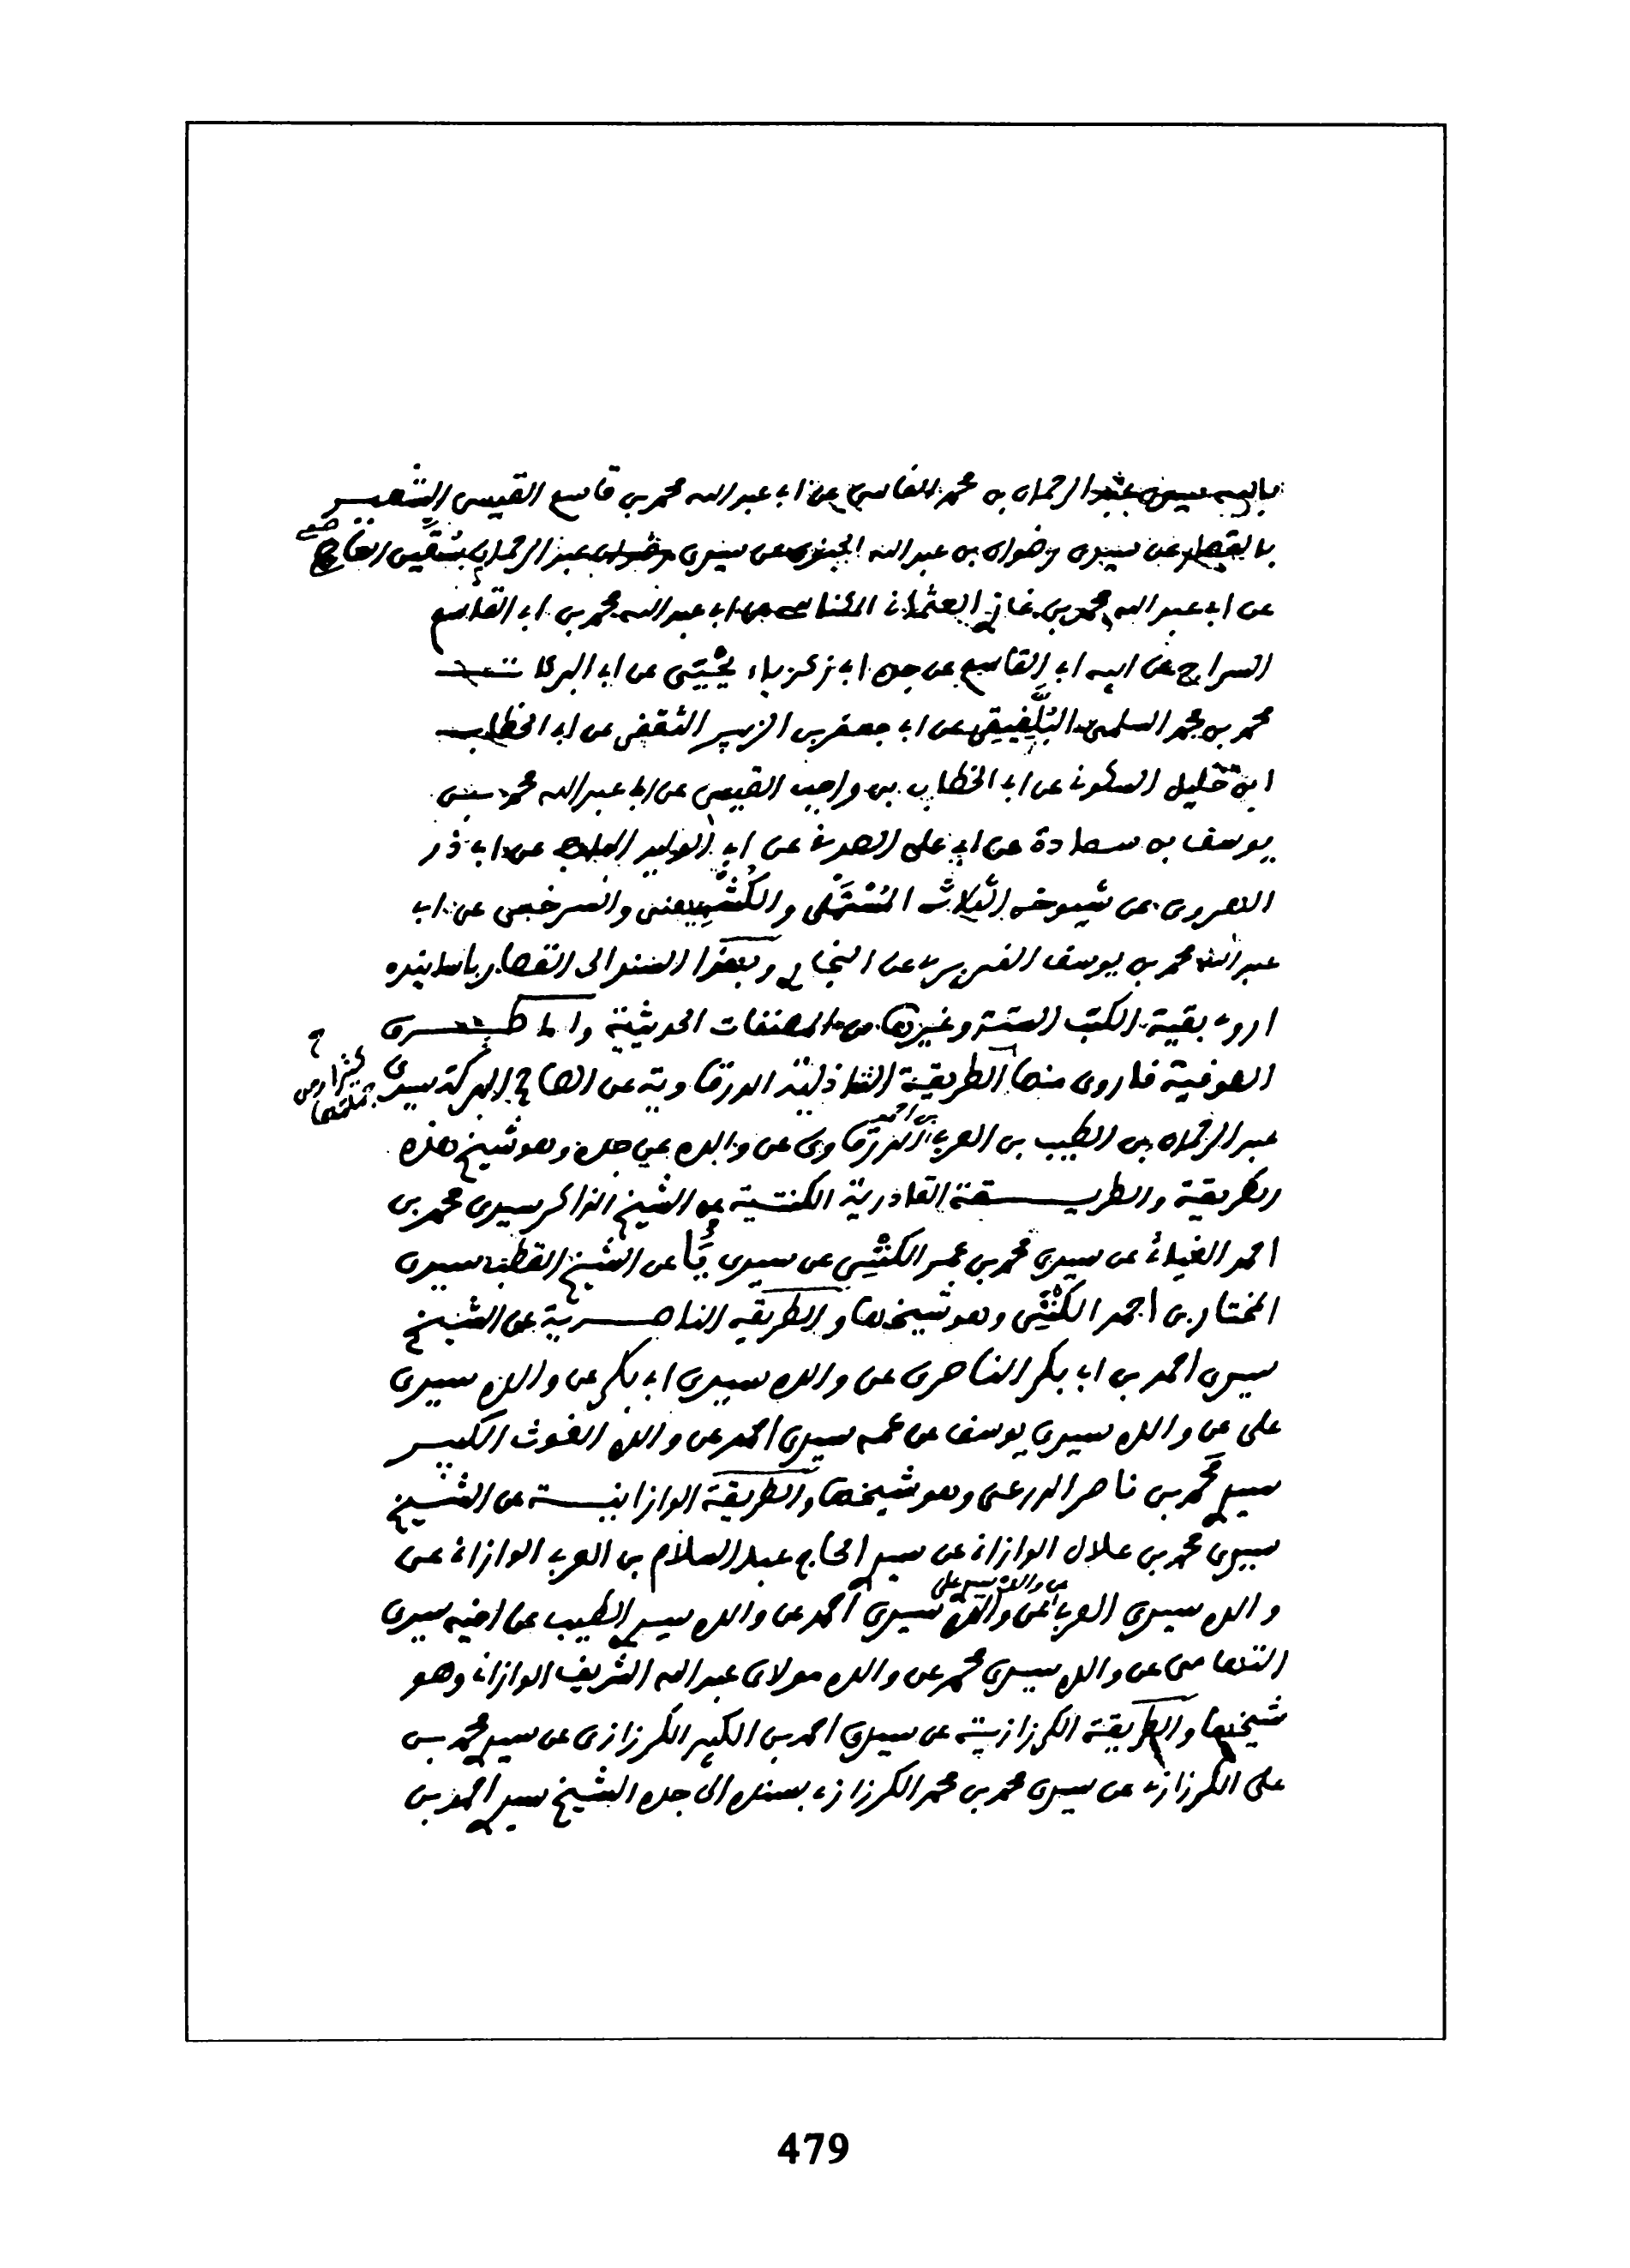 بابيه سيدي عبد الرحمان بن محمد الفاسي عن ابي عبد الله محمد بن قاسم القيسي الشهير
بالقصار عن سيدي رضوان بن عبد الله الجنوي عن سيدي عبد الرحمان سُقَّين العاصمي
عن ابي عبد الله محمد بن غازي العثماني المكناسي عن ابي عبد الله محمد بن ابي القاسم
السراج عن ابيه ابي القاسم عن جده ابي زكرياء يحْيَى عن ابي البركات
محمد بن محمد السلمي البَلَّفيقي عن ابي جعفر بن الزبير الثقفي عن ابي الخطاب
ابن خليل السكوني عن ابي الخطاب بن واجب القيسي عن ابي عبد الله محمد بن
يوسف بن سعادة عن ابي علي الصدفي عن ابي الوليد الباجي عن ابي ذر
الهروي عن شيوخه الثلاثة المُسْتَمْلي والكُشْمِيهني والسرخسي عن ابي
عبد الله محمد بن يوسف الفربري عن البخاري وبهذا السند الى القصار باسانيده
اروي بقية الكتب الستة وغيرها من المصنفات الحديثية واما طرق
الصوفية فاروي منها الطريقة الشاذلية الدرقاوية عن الصالح البركة سيدي
عبد الرحمان بن الطيب بن العربي بن احمد الدرقاوي عن والده عن جده وهو شيخ هذه
الطريقة والطريقة القادرية الكنتية عن الشيخ الذاكر سيدي محمد بن
احمد عن سيدي محمد بن عمر الكنْتِي عن سيدي عن الشيخ القطب سيدي
المختار بن احمد الكُنْتِي وهو شيخها والطريقه الناصرية عن الشيخ
سيدي احمد بن ابي بكر الناصري عن والده سيدي ابي بكر عن والده سيدي
علي عن والده سيدي يوسف عن عمه سيدي احمد عن والده الغوث الكبير
سيدي مَحمد بن ناصر الدرعي وهو شيخها والطريقة الوازانية عن الشيخ
سيدي محمد بن علال الوازاني عن سيدي الحاج عبد السلام بن العربي الوازاني عن
والده سيدي العربي عن والده سيدي علي عن والده سيدي احمد عن والده سيدي الطيب عن اخيه سيدي
التهامي عن والده سيدي محمد عن والده مولاي عبد الله الشريف الوازاني وهو
شيخها والطريقة الكرزازية عن سيدي احمد بن الكبير الكرزازي عن سيدي محمد بن
علي الكرزازي عن سيدي محمد بن محمد الكرزازي بسنده الى جده الشيخ سيدي احمد بن
479